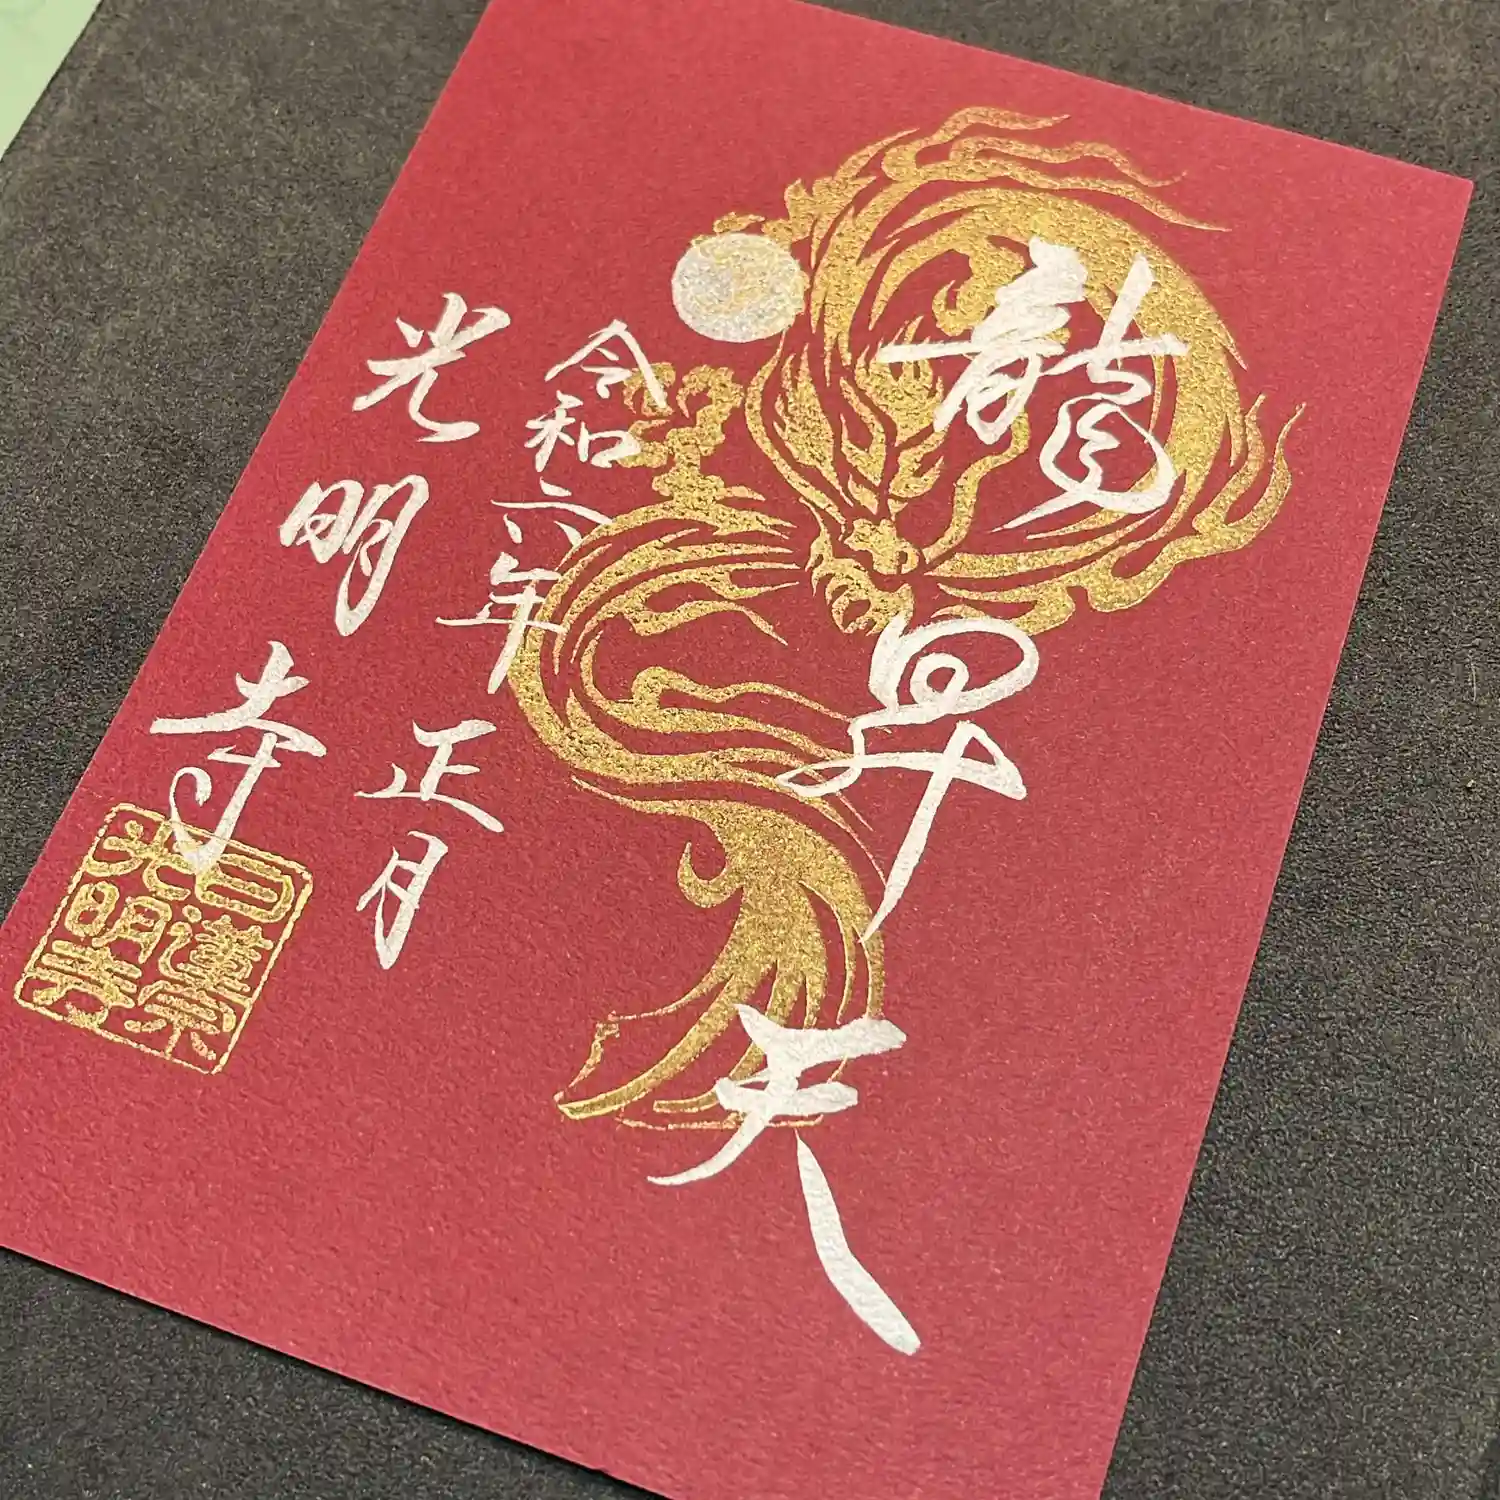 龍昇天
令和六年
正月
光明寺
日蓮宗
光明寺